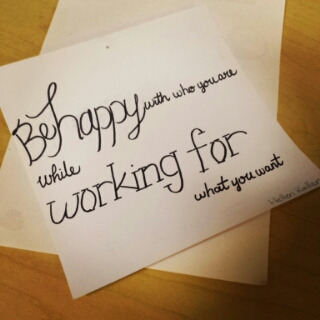 Be happy with who you are
while
working for
what you want
Helen Keller